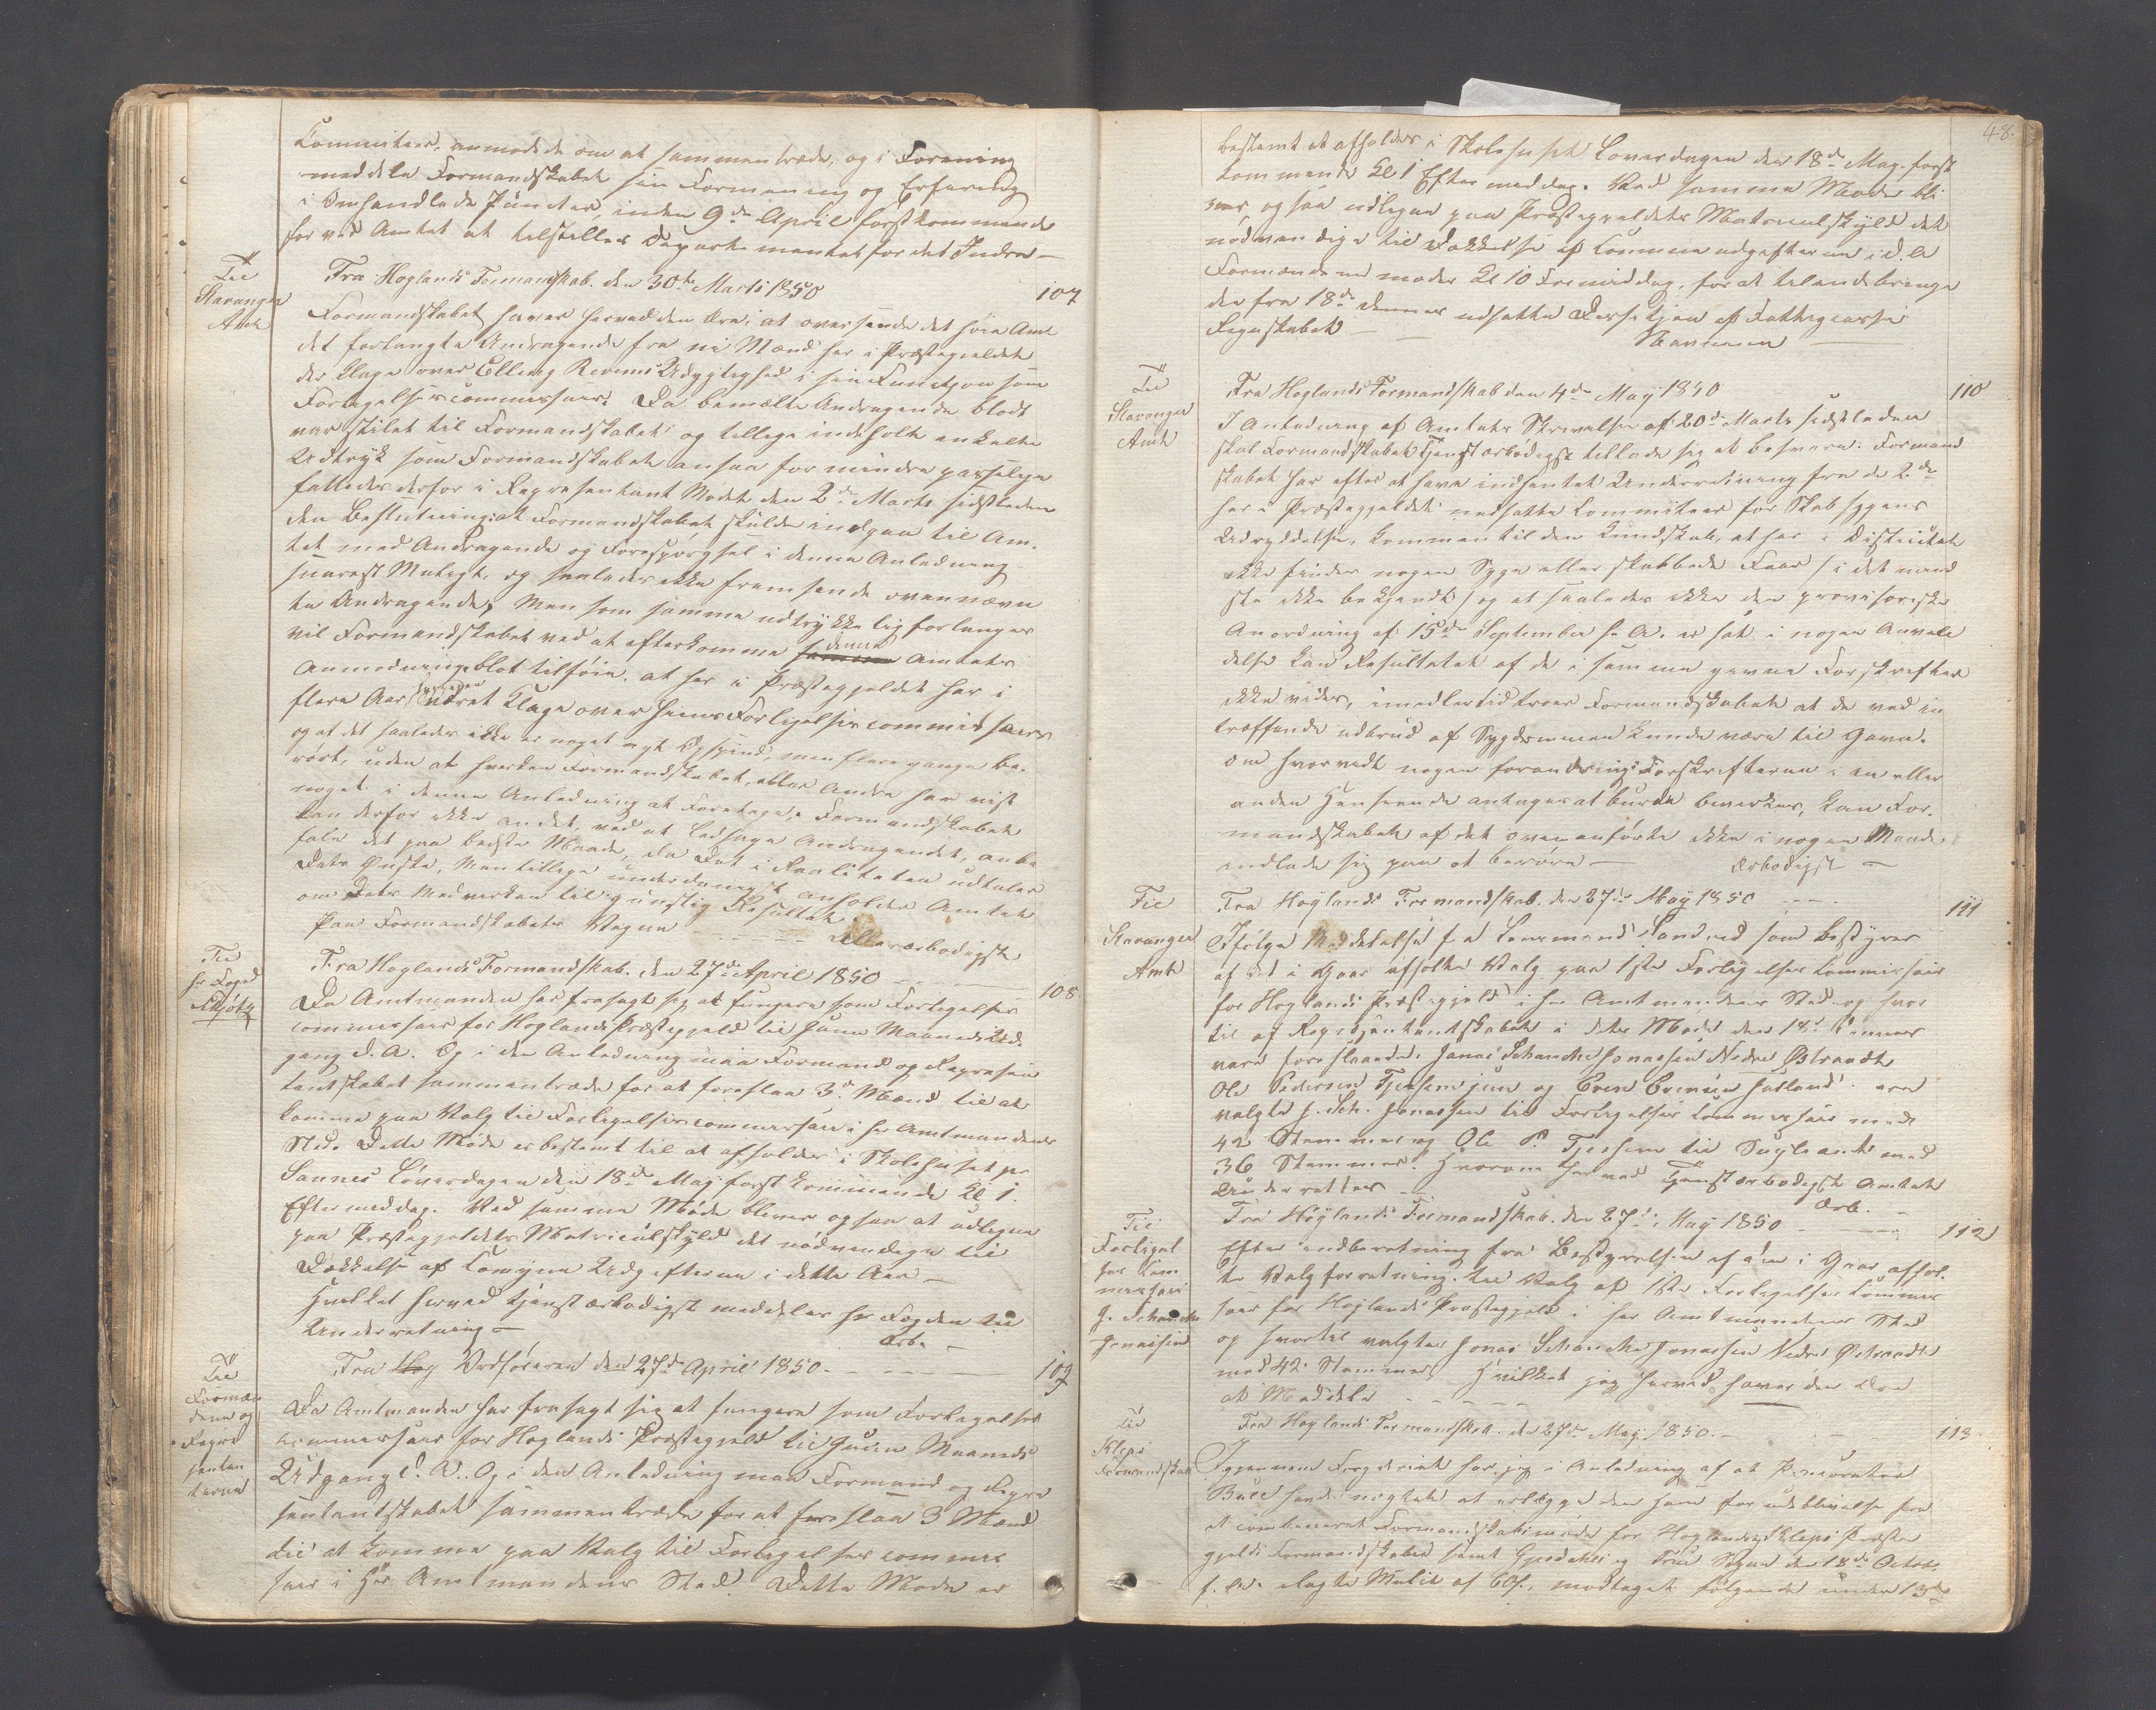 Commiteer, anmodede om at sammentræde, og i Forening
meddele Formandskabet sin Formening og Erfaring
i Omhandlede Puncter, inden 9de April førstkommende
for ved Amtet at tilstilles Departementet for det Indre —
Til
Stavanger
Amt
Fra Høglands Formandskab. den 30te Marts 1850
107
Formandskabet haver herved den Ære, at oversende det høie Amt
det forlangte Andragende fra ni Mænd her i Præstegjeldet
der klage over Elling Udygtighed i sin Function som
Forligelsescommissair. Da bemælte Andragende blodt
var stilet til Formandskabet og tillige indeholte enkelte
Udtryk som Formandskabet ansaa for mindre passelige
fattedes derfor i Representant Mødet den 2de Marts sidstleden
den Beslutning: at Formandskabet skulde indgaa til Am-
tet med Andragende og Forespørgsel i denne Anledning
snarest Muligt, og saaledes ikke fremsende ovennævn
te Andragende, Men som samme udtrykkelig forlanges
vil Formandskabet ved at efterkomme denne Amtets
Anmodning blot tilføie, at her i Præstegjeldet har i
flere Aar været Klage over hiins Forligelsescommissair
og at det saaledes ikke er noget nyt Opspind, men flere gange be-
rørt, uden at hverken Formandskabet, eller Andre har vist
noget i denne Anledning at Foretage; Formandskabet
kan derfor ikke andet, ved at ledsage Andragendet, anbe
fale det paa bedste Maade, da Det i Realiteten udtaler
Dets Ønske, Men tillige underdanigst anholder Amtet
om Dets Medvirken til gunstig Resultat
Paa Formandskabets Vegne — — — Allerærbødigst
Til
Hr Foged
Schiøtz
Fra Høglands Formandskab. den 27de April 1850 — — —
108
Da Amtmanden har frasagt sig at fungere som Forligelses
commissair for Høglands Præstegjeld til Juni Maaneds Ud-
gang d. A. Og i den Anledning maa Formand og Represen
tantskabet sammentræde for at foreslaa 3de Mænd til at
komme paa Valg til Forligelsescommissair i Hr Amtmandens
Sted. Dette Møde er bestemt til at afholdes i Skolehuset paa
Sannes Løverdagen den 18de Maj førstkommende Kl 1.
Eftermeddag. Ved samme Møde bliver ogsaa at udligne
paa Præstegjeldets Matriculskyld det nødvendige til
Dækkelse af Komune Udgifterne i dette Aar —
Hvilket herved tjenstærbødigst meddeles Hr Fogden til
Underretning — Ærb. —
Til
Formæn
dene og
Repre
sentan
terne
Fra Høg Ordføreren den 27de April 1850 — — —
109
Da Amtmanden har frasagt sig at fungere som Forligelses
commissair for Høglands Præstegjeld til Juni Maaneds
Udgang d. A. Og i den Anledning maa Formand og Repre
sentantskabet sammentræde for at foreslaa 3 Mænd
til at komme paa Valg til Forligelsescommis
sair i Hr Amtmandens Sted. Dette Møde er
48.
bestemt at afholdes i Skolehuset Løverdagen den 18de May først
kommende Kl 1 Eftermeddag. Ved samme Møde bli
ver ogsaa udligne paa Præstegjeldets Matriculskyld det
nødvendige til Dækkelse af Commune udgifterne i d. A
Formændene møder Kl 10 Formiddag, for at tilendebringe
den fra 18de dennes udsatte af Fattigcasse
Regnskabet —
Til
Stavanger
Amt
Fra Høglands Formandskab den 4de May 1850
110
I Anledning af Amtets Skrivelse af 20de Marts sidstleden
skal Formandskabet Tjenstærbødigst tillade sig at besvare: Formand
skabet har efter at have indhentet Underretning fra de 2de
her i Præstegjeldet nedsatte Commiteer for Skabsygens
Udryddelse, kommen til den Kundskab, at her i Districtet
ikke findes nogen Syge eller skabbede Faar / i det mind
ste ikke bekjendt / og at saaledes ikke den provisoriske
Anordning af 15de September f. A. er sat i nogen Anven
delse kan Resultatet af de i samme givne Forskrifter
ikke vides, imedlertid troer Formandskabet at de ved in
træffende udbrud af Sygdommen kunde være til Gavn.
Om hvorvidt nogen forandring Forskrifterne i en eller
anden Henseende antages at burde bevirkes, kan For-
mandskabet af det ovenanførte ikke i nogen Maade
indlade sig paa at berøre — Ærbødigst —
Til
Stavanger
Amt
Fra Høglands Formandskab. den 27de May 1850 — — —
111
Ifølge Meddelelse fra Lensmand som bestyrer
af det i Gaar afholte Valg paa 1ste Forligelses Commissair
for Høglands Præstegjeld i Hr Amtmandens Sted og hvor
til af Representantskabet i dets Møde den 18de dennes
vare foreslaaede: Jonas Schanche Jonassen Nedre Østraadt
Ole Pedersen Tjessem jun og Even Evensen Hutland. ere
valgte J. Sch. Jonassen til Forligelses Commissair med
42 Stemmer og Ole P. Tjessem til Supleant med
36 Stemmer. Hvorom herved Tjenstærbødigst Amtet
Underrettes — Ærb. —
Til
Forligel
ses Com
missair
J. Schanche
Jonassen
Fra Høglands Formandskab. den 27de May 1850 — — —
112
Efter indberetning fra Bestyrelsen af den i Gaar afhol-
te Valgforretning til Valg af 1ste Forligelses Commis
sair for Høglands Præstegjeld i Hr Amtmandens Sted
og hvortil valgtes Jonas Schanche Jonassen Nedre Østraadt
med 42 Stemmer, Hvilket jeg herved haver den Ære
at Meddele — — — — —
Til
Kleps
Formandskab
Fra Høglands Formandskab. den 27de May 1850. —
113.
Igjennem Fogderiet har jeg i Anledning af at Procurator
Bull havde nægtet at erlægge den ham for udeblivelse fra
et combineret Formandskabsmøde for Høglands, Kleps Præste
gjelds Formandskaber samt Gjesdahls og Sogne den 18de Octob.
f. A. ilagte Mulct af 60 , modtaget følgende under 13de